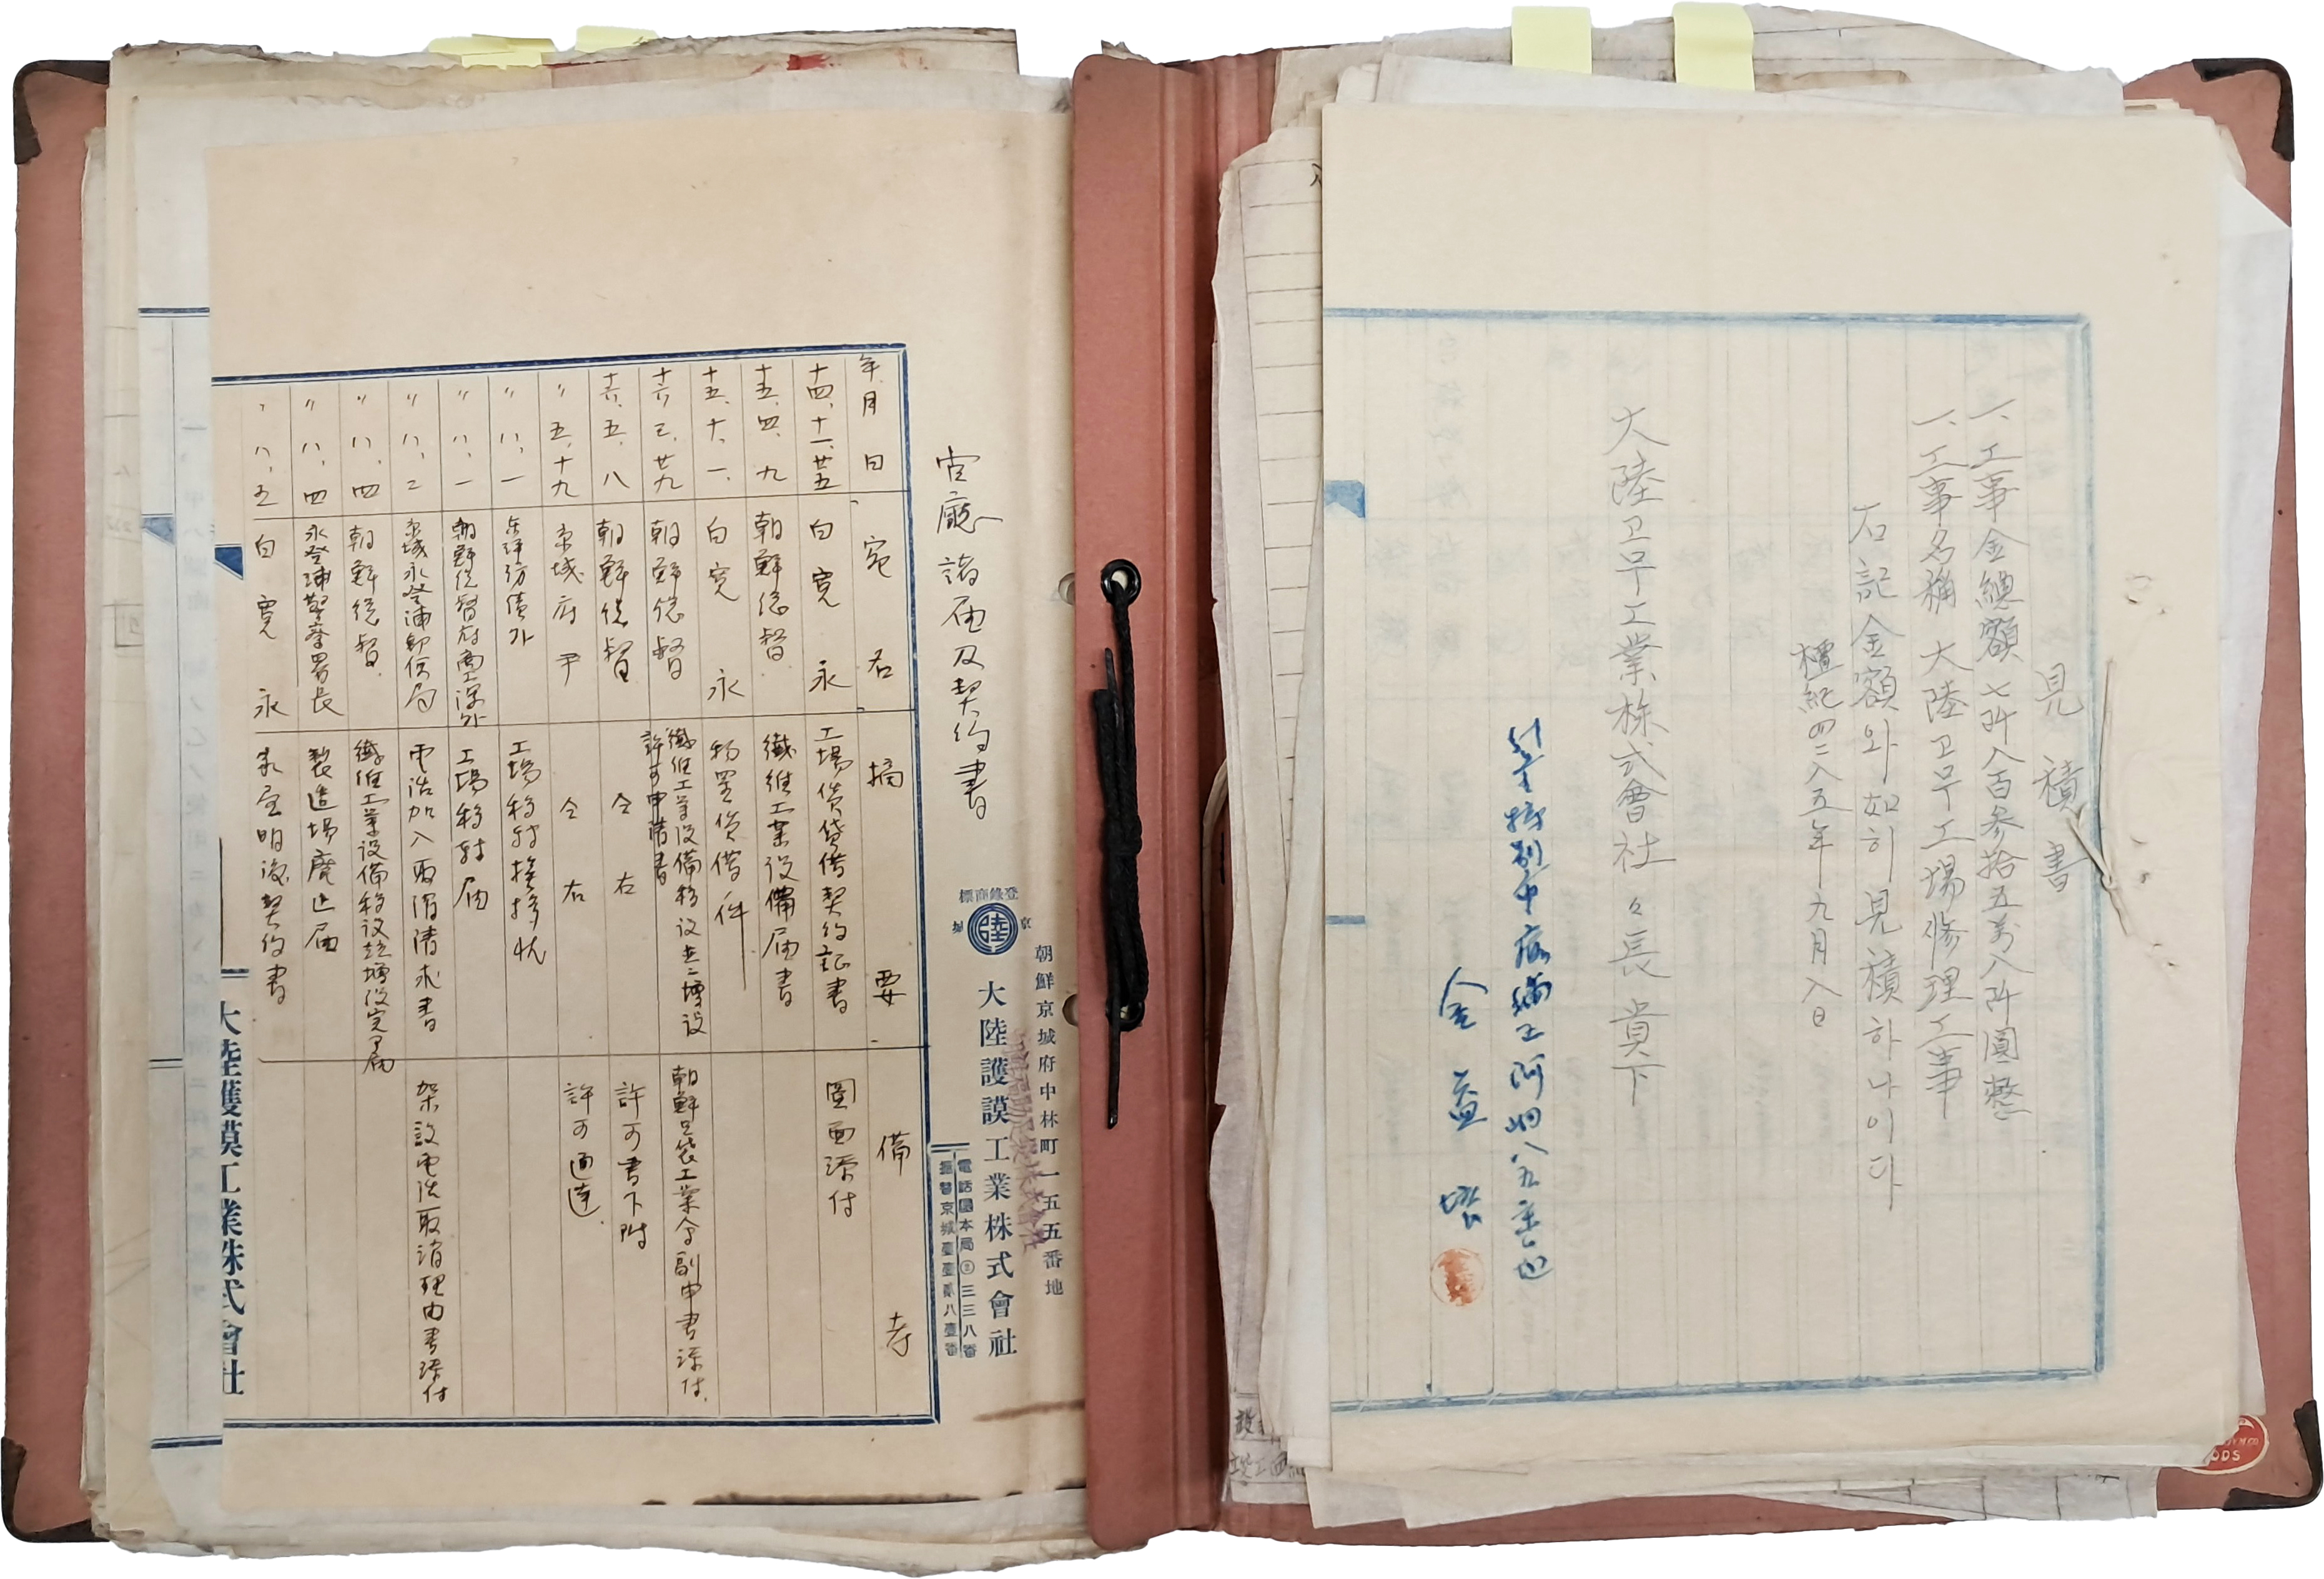 見積書
一、工事金總額 七阡八百參拾五萬八阡圓整
一、工事名稱 大陸고무工場修理工事
右記金額와如히見積하나이다
檀紀四二八五年九月八日
大陸고무工業株式會社々長 貴下
金益
朝鮮京城府中林町一五五番地
登錄商標
陸
大陸護謨工業株式會社
電話龍本局③三三八番
振替京城壹壹貳八壹番
官廳諸届及契約書
年月日 宛名 摘要 備考
十四、十一、廿五 白寛永 工場賃貸借契約証書 圖面添付
十五、四、九 朝鮮総督 繊維工業設備届書
十五、十、一、 白寛永 物置賃借ノ件
十六、三、廿九 朝鮮総督 繊維工業設備移設並ニ増設許可申請書 朝鮮足袋工業組合副申書添付、
十六、五、八 朝鮮総督 仝右 許可書下附
〃五、十九 京城府尹 仝右 許可通達、
〃八、一 工場移転挨拶状
〃八、一 朝鮮総督府商工課外 工場移転届
〃八、二 京城永登浦郵便局 電話加入取消請求書 架設電話取消理由書添付
〃八、四 朝鮮総督 繊維工業設備移設並増設完了届
〃八、四 永登浦警察署長 製造場廃止届
〃八、五 白寛永 家屋明渡契約書
大陸護謨工業株式會社